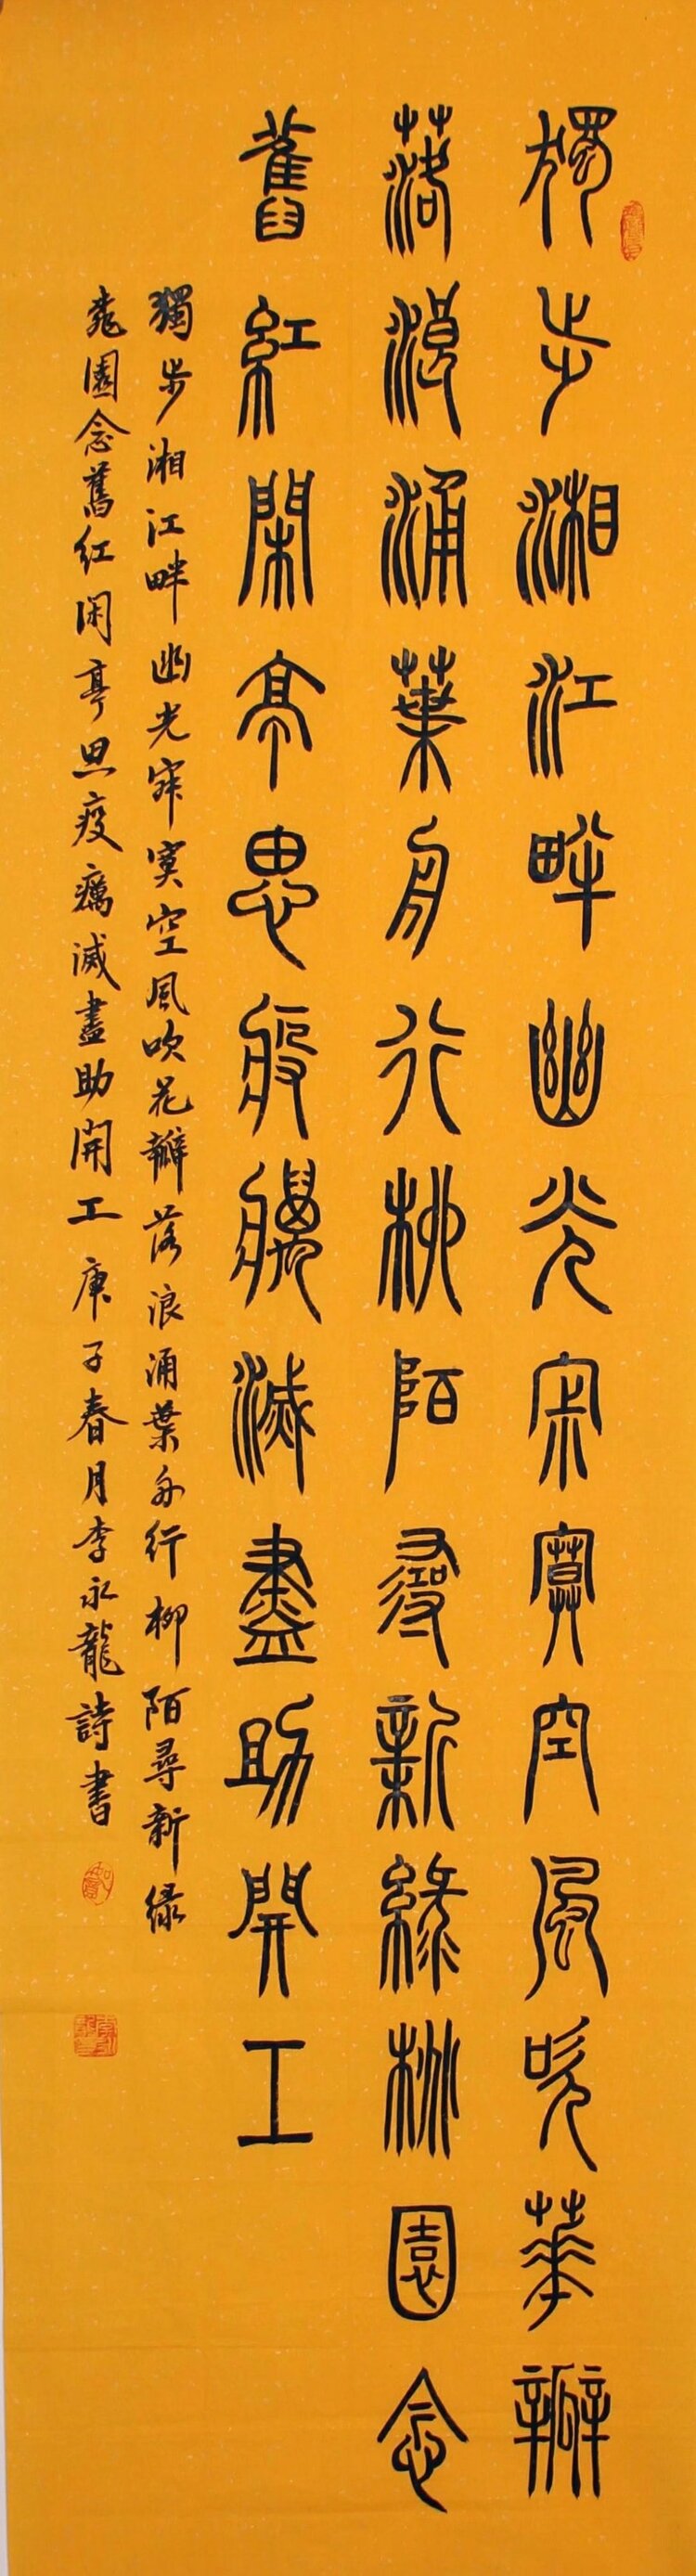 獨步湘江畔幽光寂寞空風吹華瓣
落浪涌葉舟行柳陌尋新綠桃園念
舊紅閑亭思疫癘滅盡助開工
獨步湘江畔幽光寂寞空風吹花瓣落浪涌葉舟行柳陌尋新綠
桃園念舊紅閑亭思疫癘滅盡助開工 庚子春月李永龍詩書